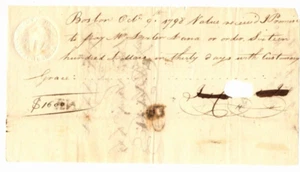 Boston Oct. 9. 1798 Value received I Promise
to pay Mr. Dana or order Sixteen
hundred Dollars in thirty days with Customary
Grace.
$1600